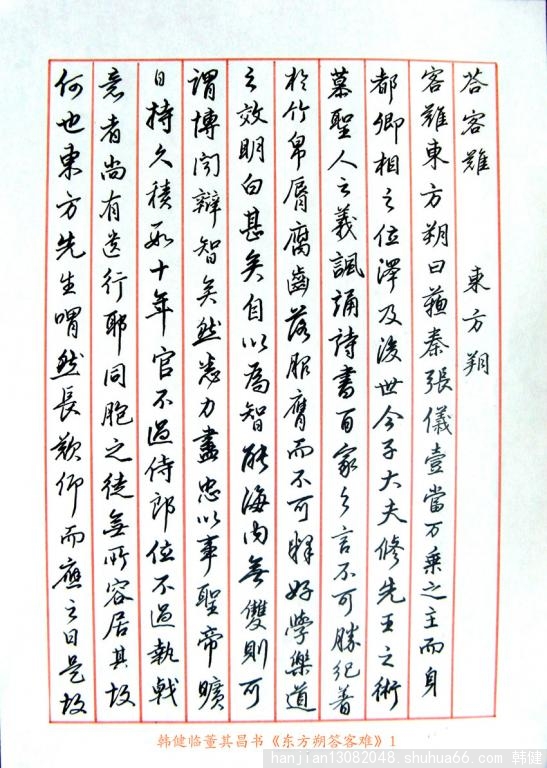 答客難 東方朔
客難東方朔曰蘇秦張儀壹當万乘之主而身
都卿相之位澤及後世今子大夫修先王之術
慕聖人之義諷誦詩書百家之言不可勝紀著
於竹帛脣腐齒落服膺而不可釋好學樂道
之效明白甚矣自以為智能海內無雙則可
謂博聞辯智矣然悉力盡忠以事聖帝曠
日持久積數十年官不過侍郎位不過執戟
意者尚有遺行耶同胞之徒無所容居其故
何也東方先生喟然長歎仰而應之曰是故
韩健临董其昌书《东方朔答客难》1
hanjian13082048, shuhua66.com 韩健